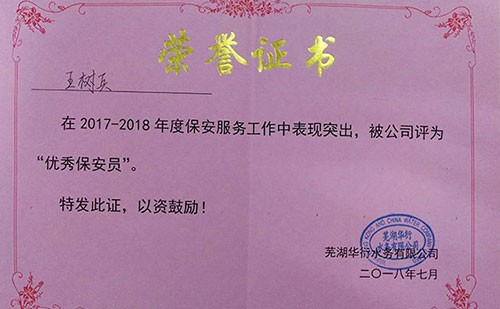 荣誉证书
王树兵
在 2017-2018 年度保安服务工作中表现突出，被公司评为
“优秀保安员”。
特发此证，以资鼓励！
芜湖华衍
水务有限公司
芜湖华衍水务有限公司
二〇一八年七月